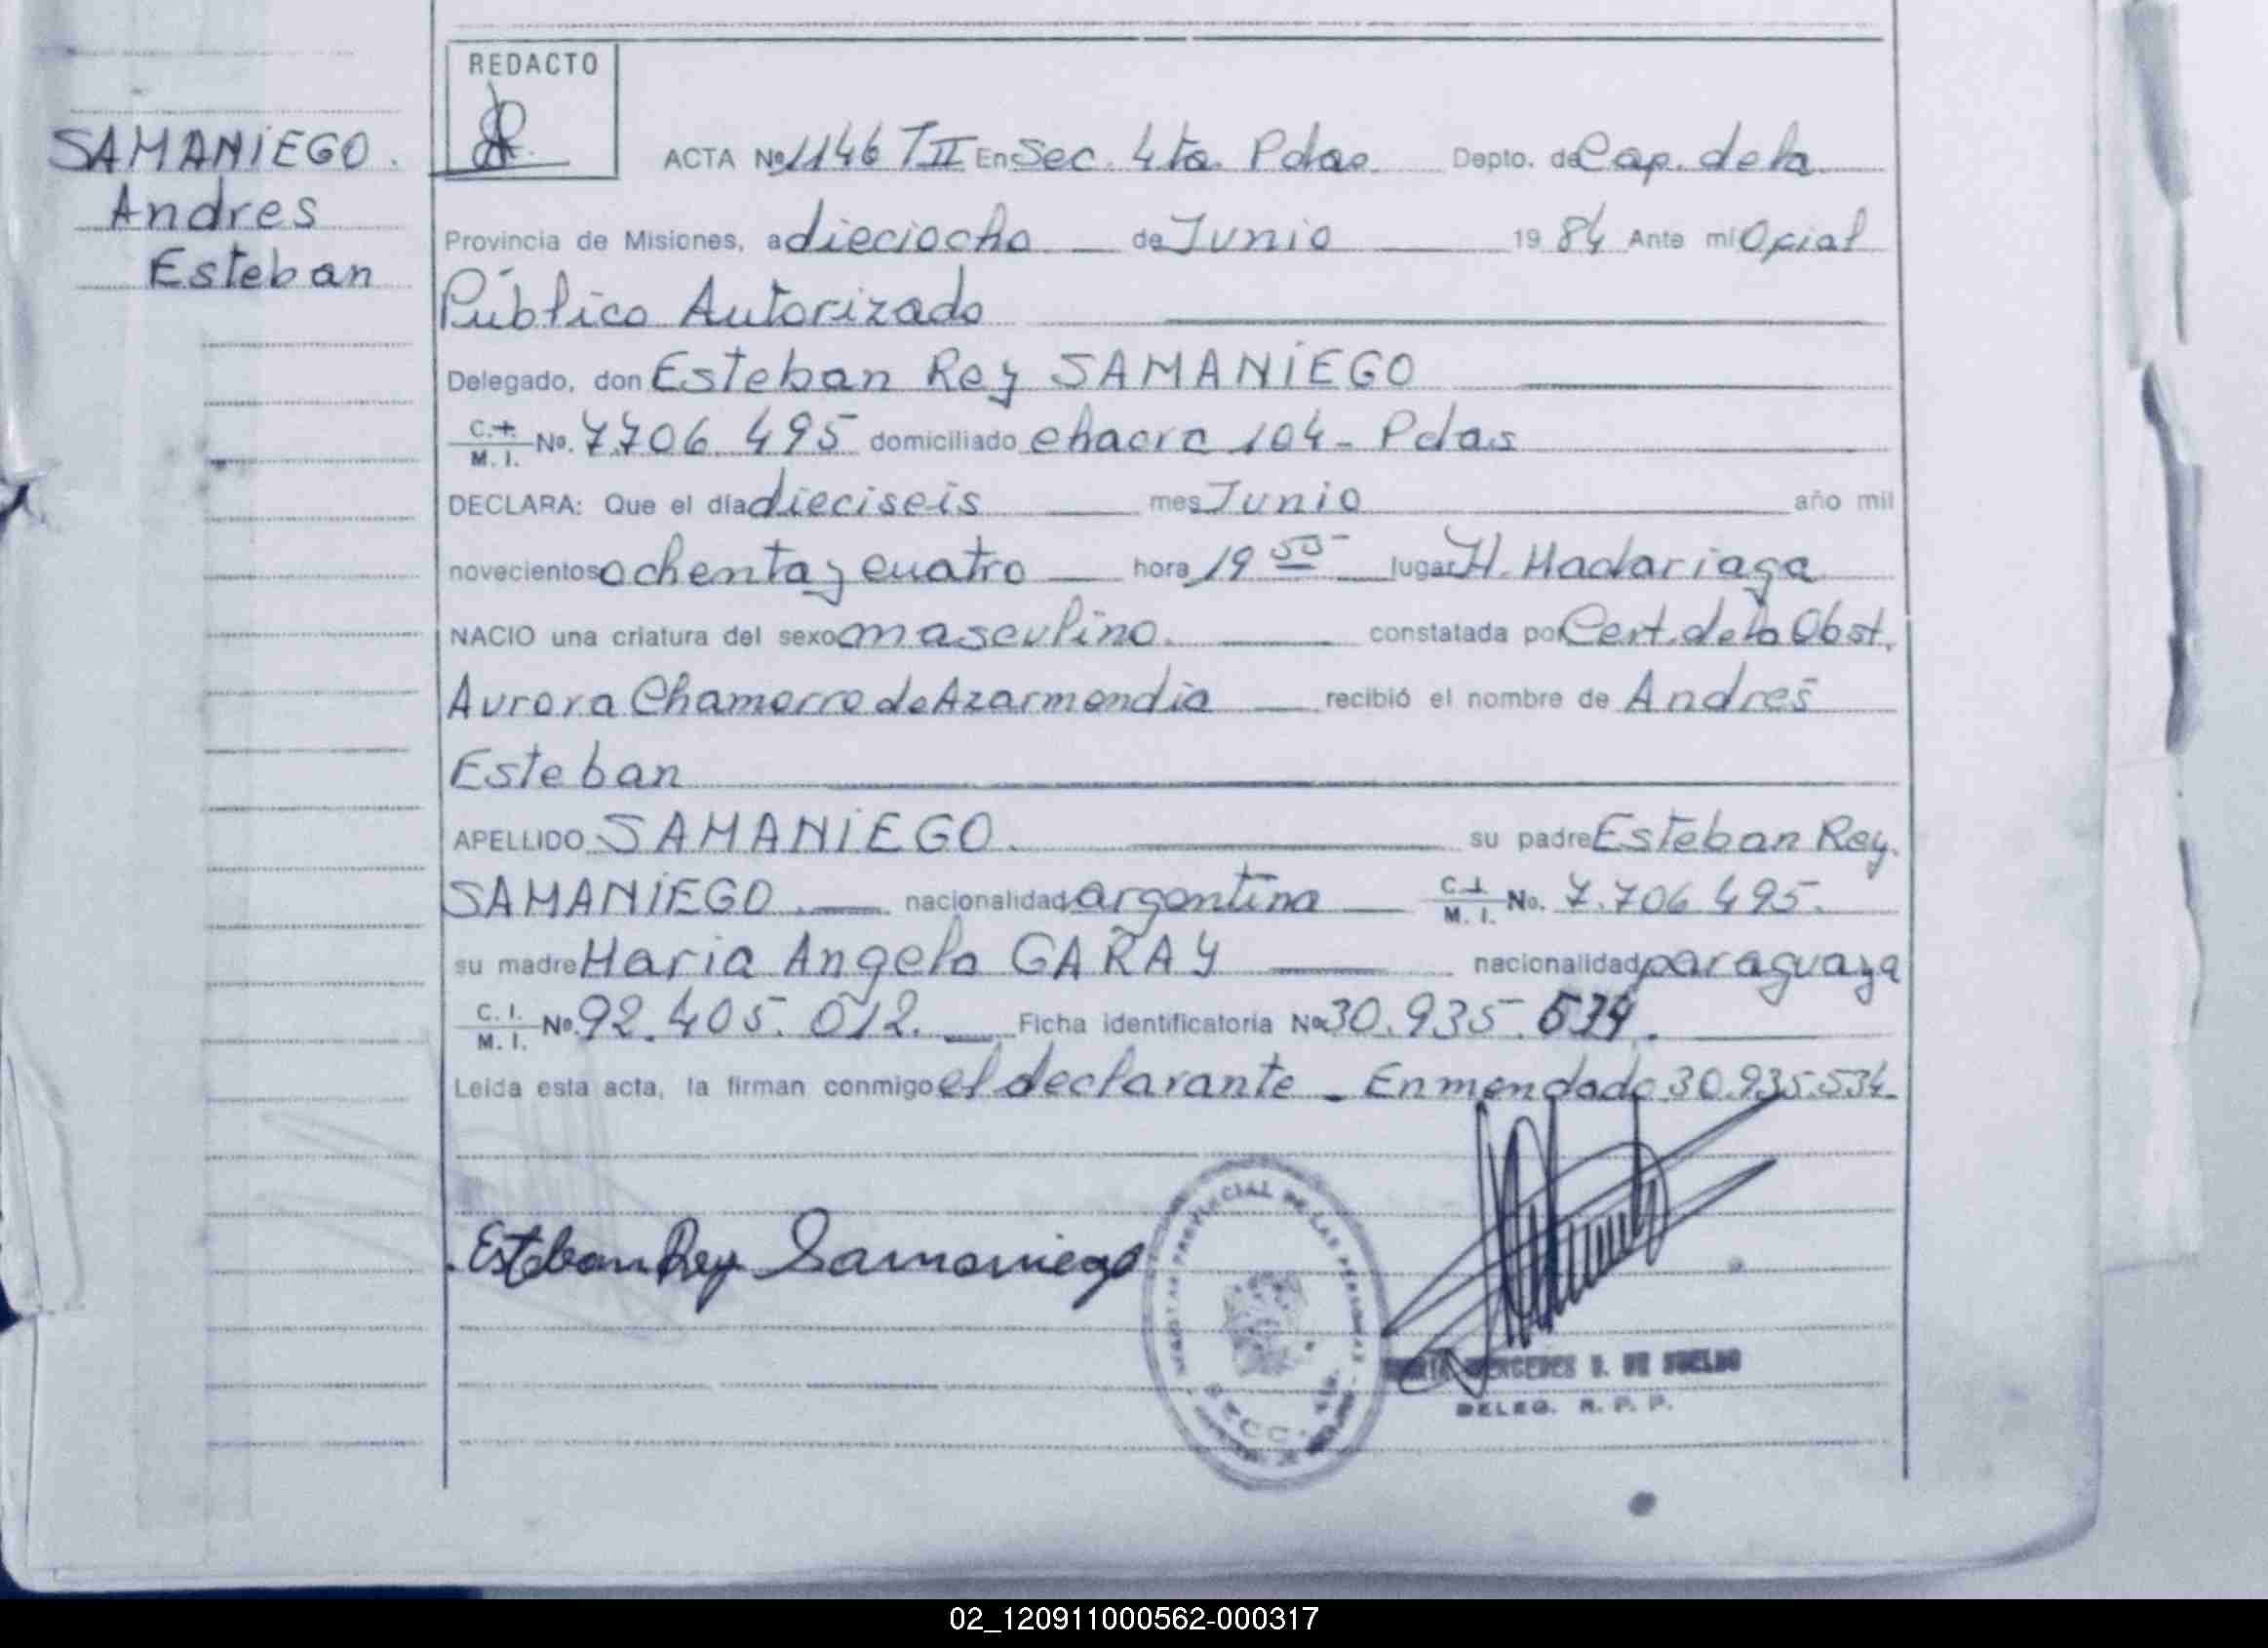 REDACTO
SAMANIEGO.
Andres
Esteban
ACTA Nº 1146 T II En Sec. 4ta. Pdas. Depto. de Cap. de la
Provincia de Misiones, a dieciocho de Junio 19 84 Ante mi Oficial
Público Autorizado
Delegado, don Esteban Rey SAMANIEGO
C.I. M. I. No. 7.706.495 domiciliado chacra 104- Pdas
DECLARA: Que el día dieciseis mes Junio año mil
novecientos ochenta y cuatro hora 19 55 lugar H. Madariaga
NACIO una criatura del sexo masculino. constatada por Cert. de la Obst.
Aurora Chamorro de Azarmendia recibió el nombre de Andrés
Esteban
APELLIDO SAMANIEGO. su padre Esteban Rey.
SAMANIEGO. nacionalidad argentina C.I. M. I. No. 7.706.495.
su madre Maria Angela GARAY nacionalidad paraguaya
C. I. M. I. Nº 92.405.012. Ficha identificatoria Nº 30.935.534.
Leída esta acta, la firman conmigo el declarante - Enmendado 30.935.534.
Esteban Rey Samaniego
PROVINCIAL DE LAS PERSONAS
MERCEDES DE
DELEG. R. P. P.
02_120911000562-000317